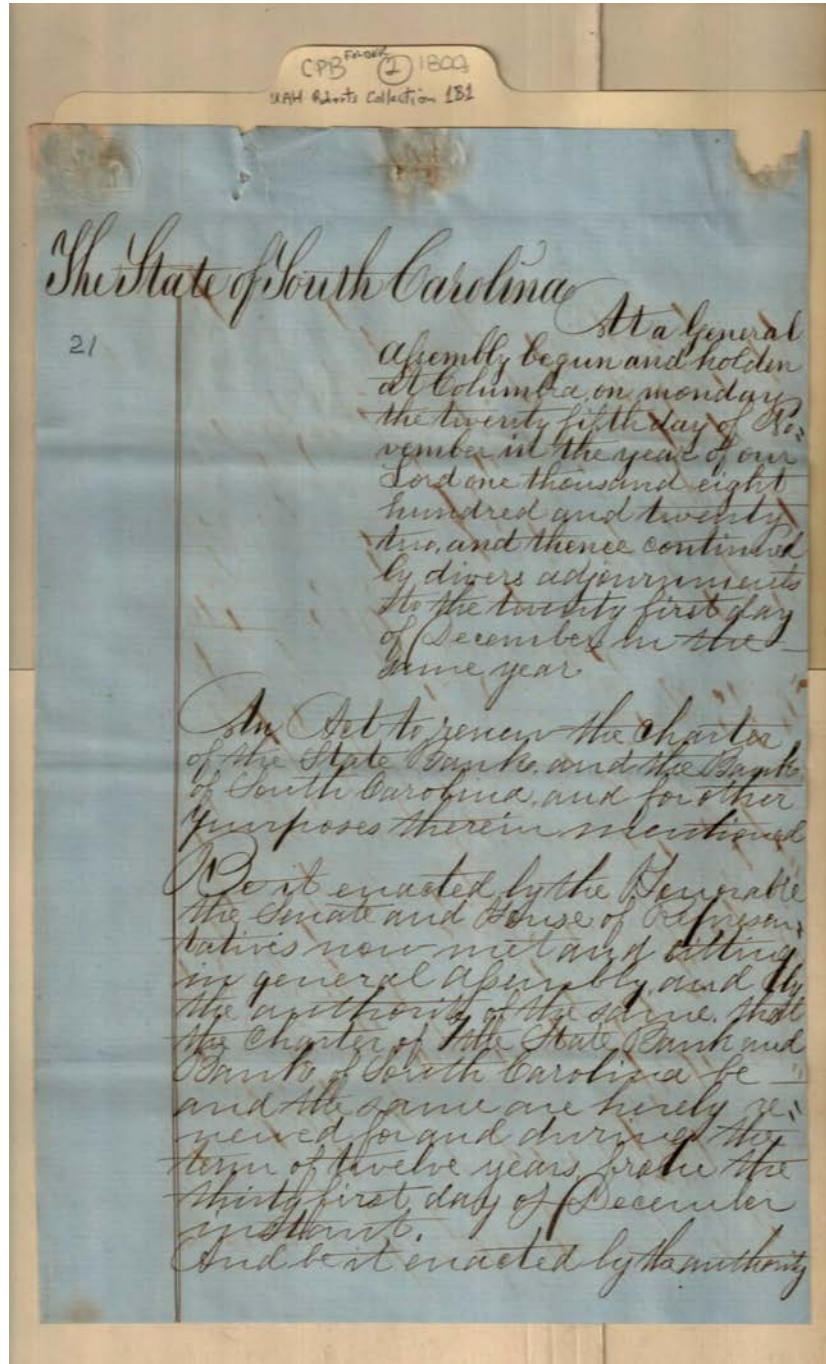 CPB Folder 2 1809
UAH Roberts Collection 1B1
The State of South Carolina
21
At a General
Assembly begun and holden
at Columbia, on monday
the twenty fifth day of No=
vember in the year of our
Lord one thousand eight
hundred and twenty
two, and thence continued
by divers adjournments
to the twenty first day
of December in the
same year
An Act to renew the charter
of the State Bank, and the Bank
of South Carolina, and for other
purposes therein mentioned
Be it enacted by the Honorable
the Senate and House of Represen=
tatives now met and sitting
in general Assembly, and by
the authority of the same, that
the Charter of the State Bank and
Bank of South Carolina be
and the same are hereby re=
newed for and during the
term of twelve years, from the
thirty first day of December
instant.
And be it enacted by the authority